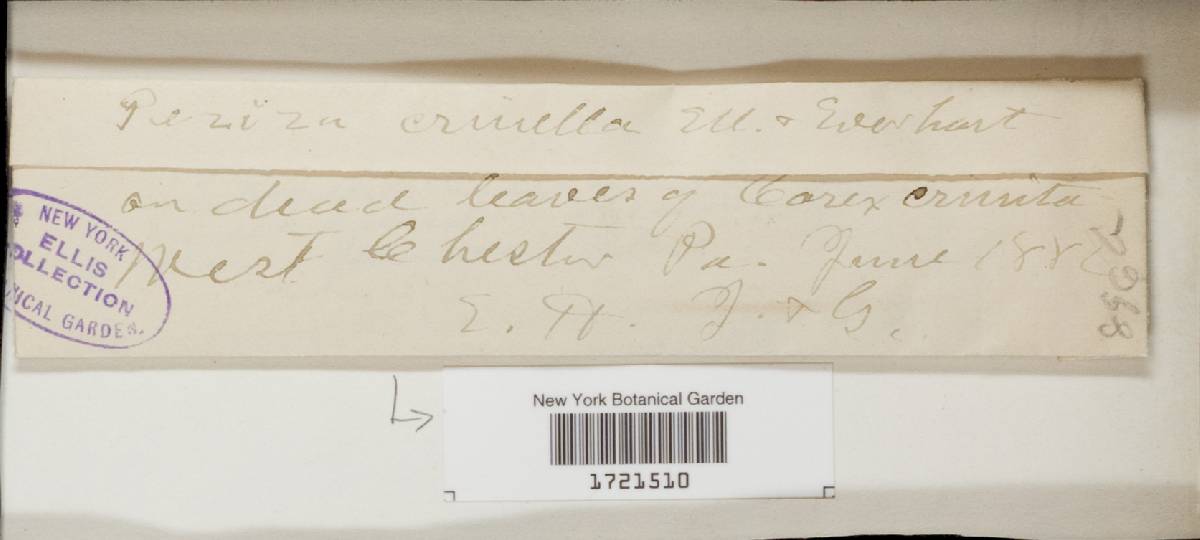 Peziza crinella Ell. & Everhart
on dead leaves of Carex crinita
West Chester Pa. June 188
E. H. J. & G.
2968
NEW YORK
ELLIS
COLLECTION
GARDEN.
New York Botanical Garden
1721510